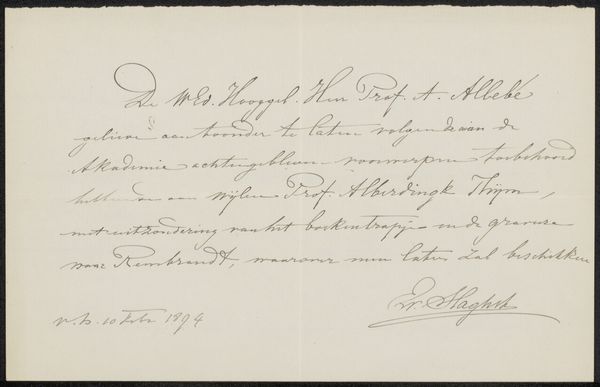 De WEd. Hooggel. Heer Prof. A. Allebé
gelieve aan toonder te laten volgen de aan de
Akademie achtergebleven voorwerpen toebehoord
hebbende aan wijlen Prof. Alberdingk Thijm,
met uitzondering van het boekentrapje en de gravure
naar Rembrandt, waarover men later zal beschikken
v.h. 10 Febr 1894